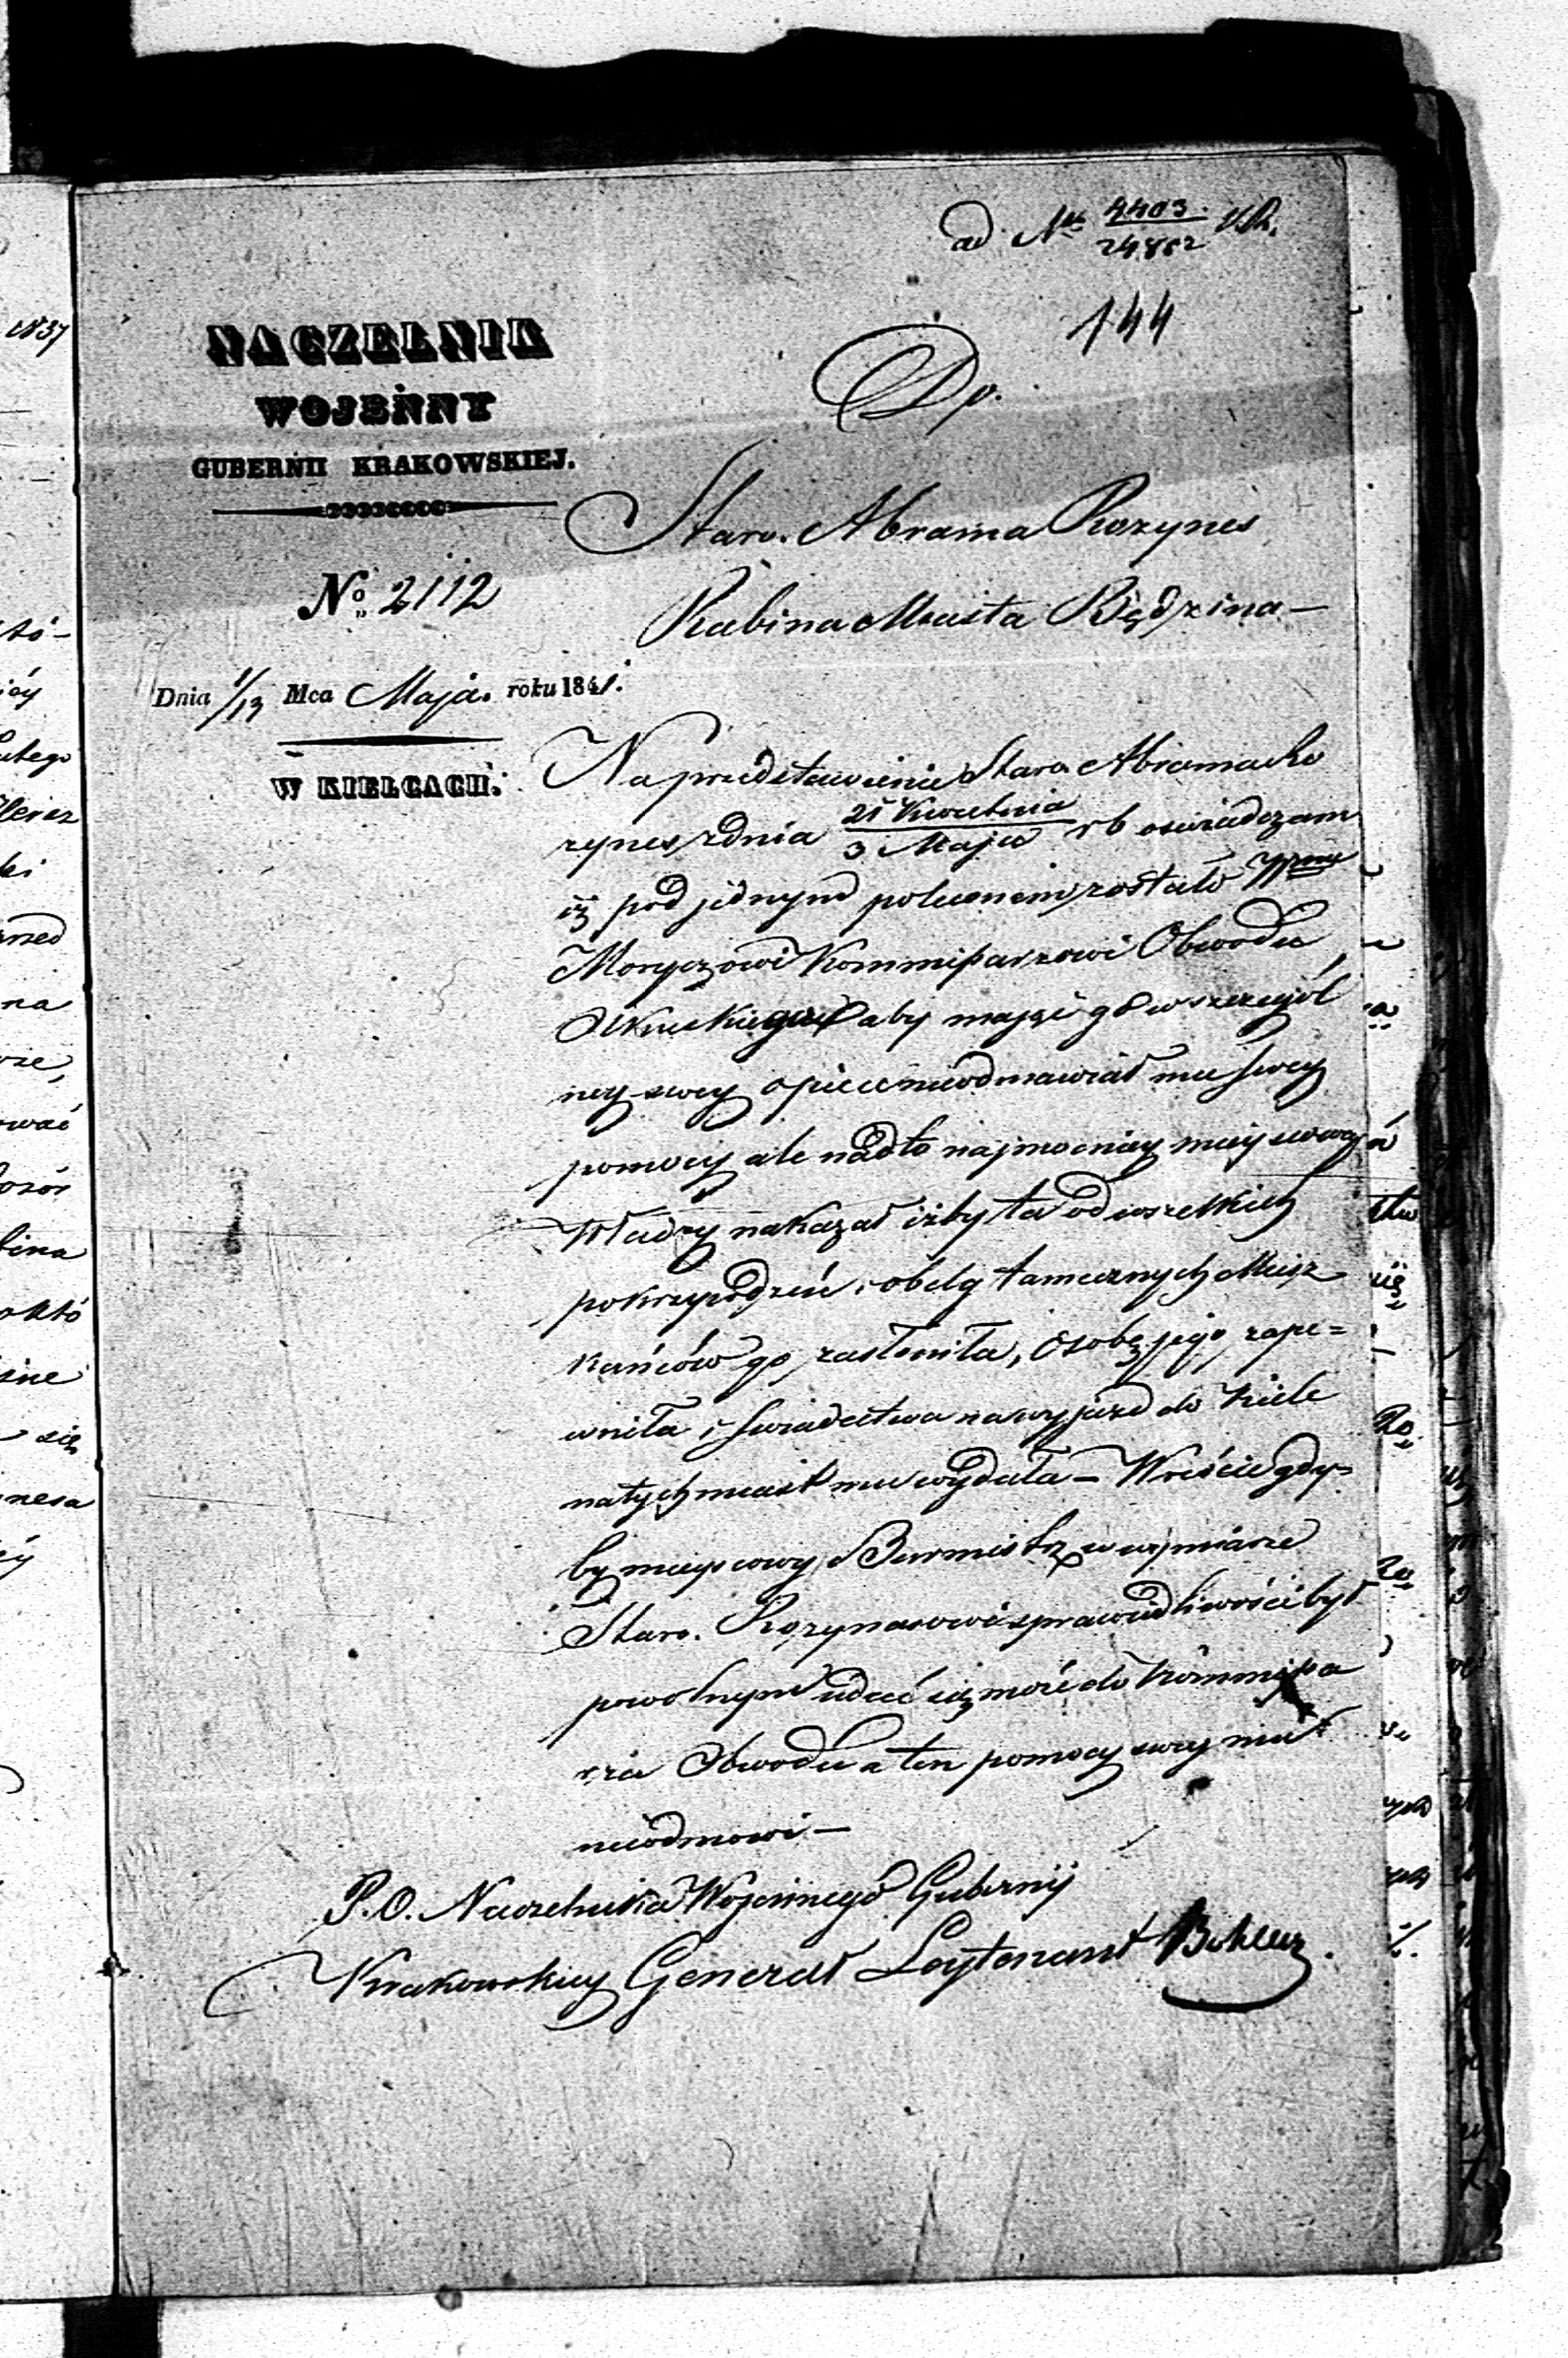 ad Nr 4403
24882
144
NACZELNIK
WOJENNY
GUBERNII KRAKOWSKIEJ.
No 2112
Dnia 1/13 Mca Maja. roku 1841.
W KIELCACH.
Do.
Staro. Abrama Rozynes
Rabina Miasta Będzina —
Na przedstawienie Staro Abrama Ro
zynes z dnia 21 Kwietnia
3 Maja rb oswiadczam
iż pod jednym poleconem zostało
Moryczowi Kommissarzowi Obwodu
Olkuskiego aby mając go w szczegól
ney swey opiece nieodmawiał mu swey
pomocy ale nadto najmocniey mieyscowey
Władzy nakazał izby ta od wszelkich
pokrzywdzeń i obelg tamecznych Miesz
kańców go zasłoniła, Osobę jego zape=
wniła i swiadectwa na wyjazd do Kielc
natychmiast mu wydała — Wreście gdy=
by mieyscowy Burmistrz w wymiarze
Staro. Rozynasowi sprawiedliwości był
powolnym udać się może do Kommissa
rza Obwodu a ten pomocy swey mu
nieodmowi —
P.O. Naczelnika Wojennego Gubernij
Krakowskiey Generał Leytenant
1837